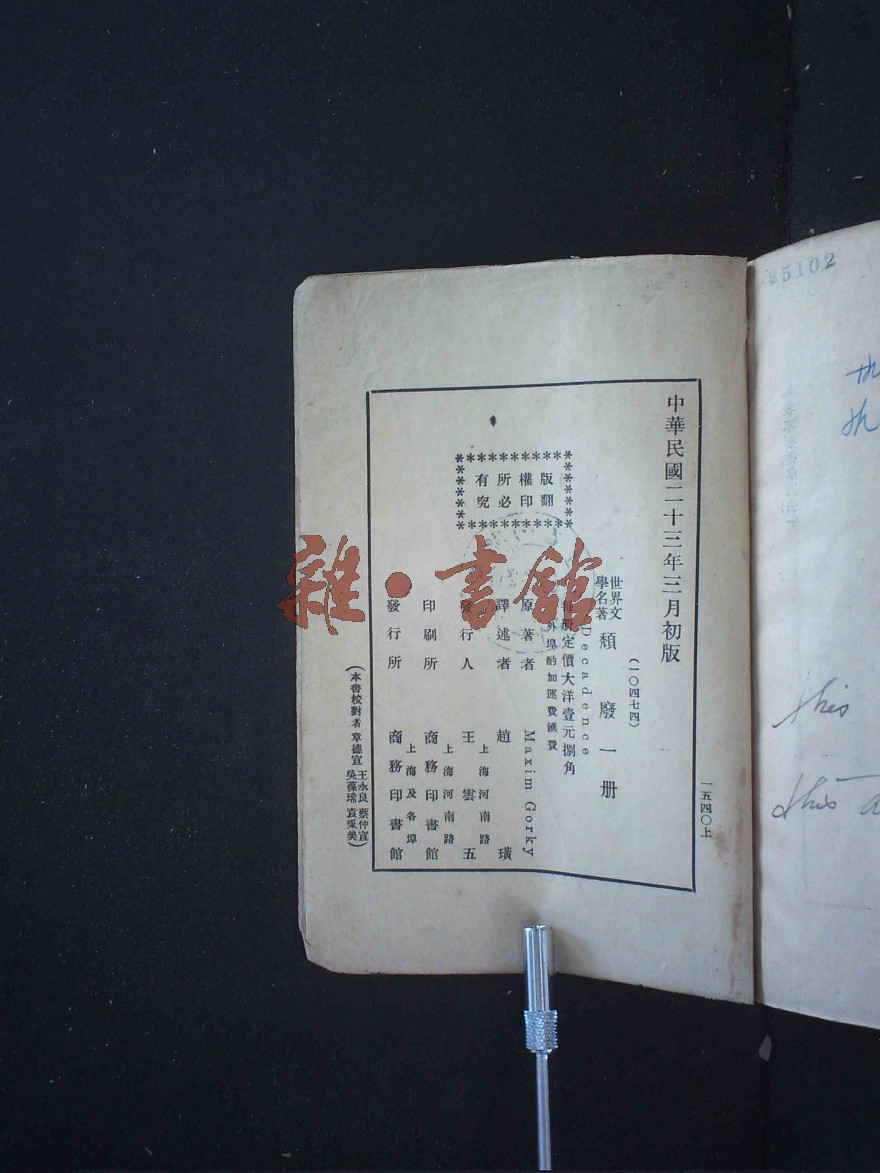 中華民國二十三年三月初版
一五四〇上
(一〇四七四)
世界文
學名著
頹廢一册
Decadence
每册定價大洋壹元捌角
外埠酌加運費匯費
原著者 Maxim Gorky
譯述者 趙璜
發行人 王雲五
上海河南路
印刷所 商務印書館
上海河南路
發行所 商務印書館
上海及各埠
版權所有
翻印必究
(本書校對者 章德宣 王永良 蔡仲宣
吳葆瑞 袁秉美)
雜·書館
25102
this
this